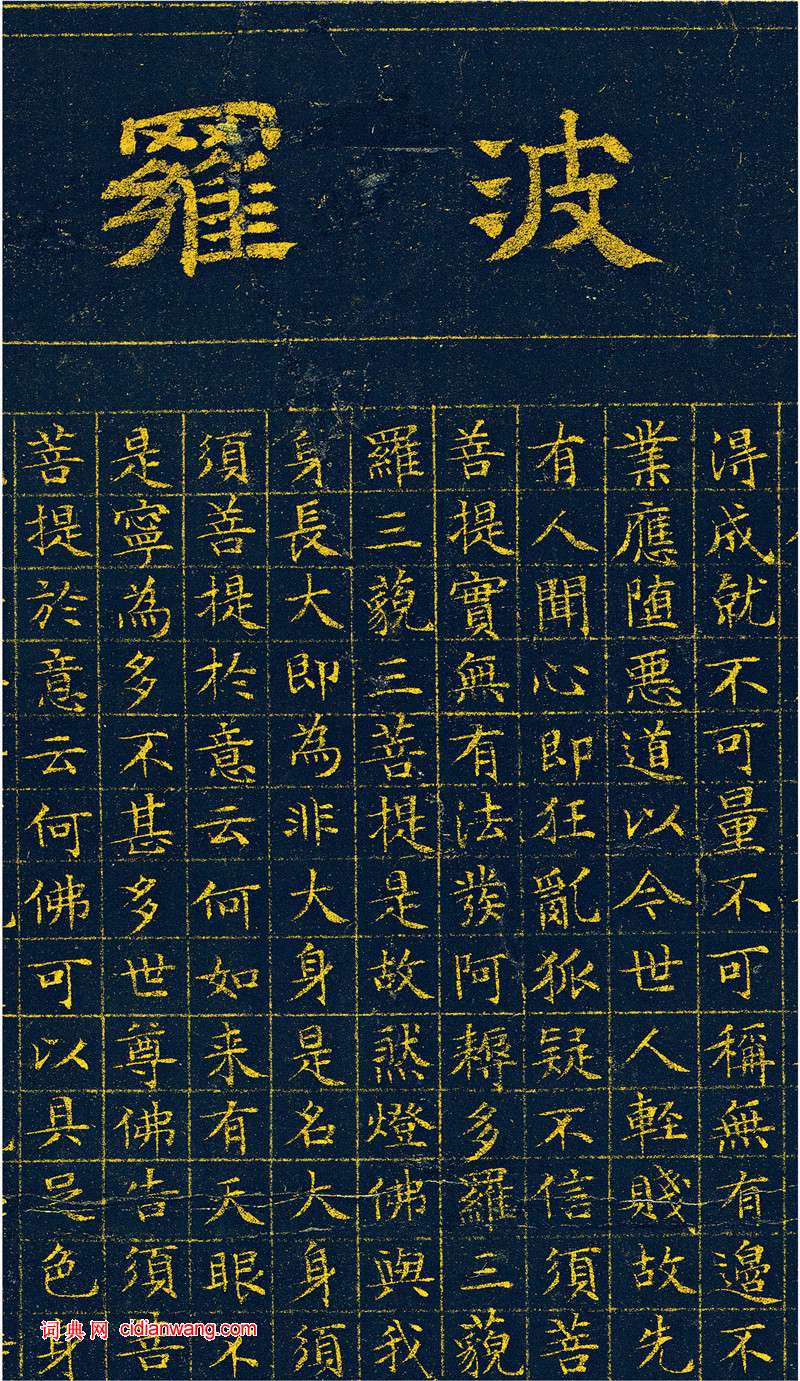 波羅
得成就不可量不可稱無有邊不
業應堕惡道以今世人輕賤故先
有人聞心即狂亂狐疑不信須菩
菩提實無有法發阿耨多羅三藐
羅三藐三菩提是故然燈佛與我
身長大即為非大身是名大身須
須菩提於意云何如来有天眼不
是寧為多不甚多世尊佛告須菩
菩提於意云何佛可以具足色身
词典网 cidianwang.com